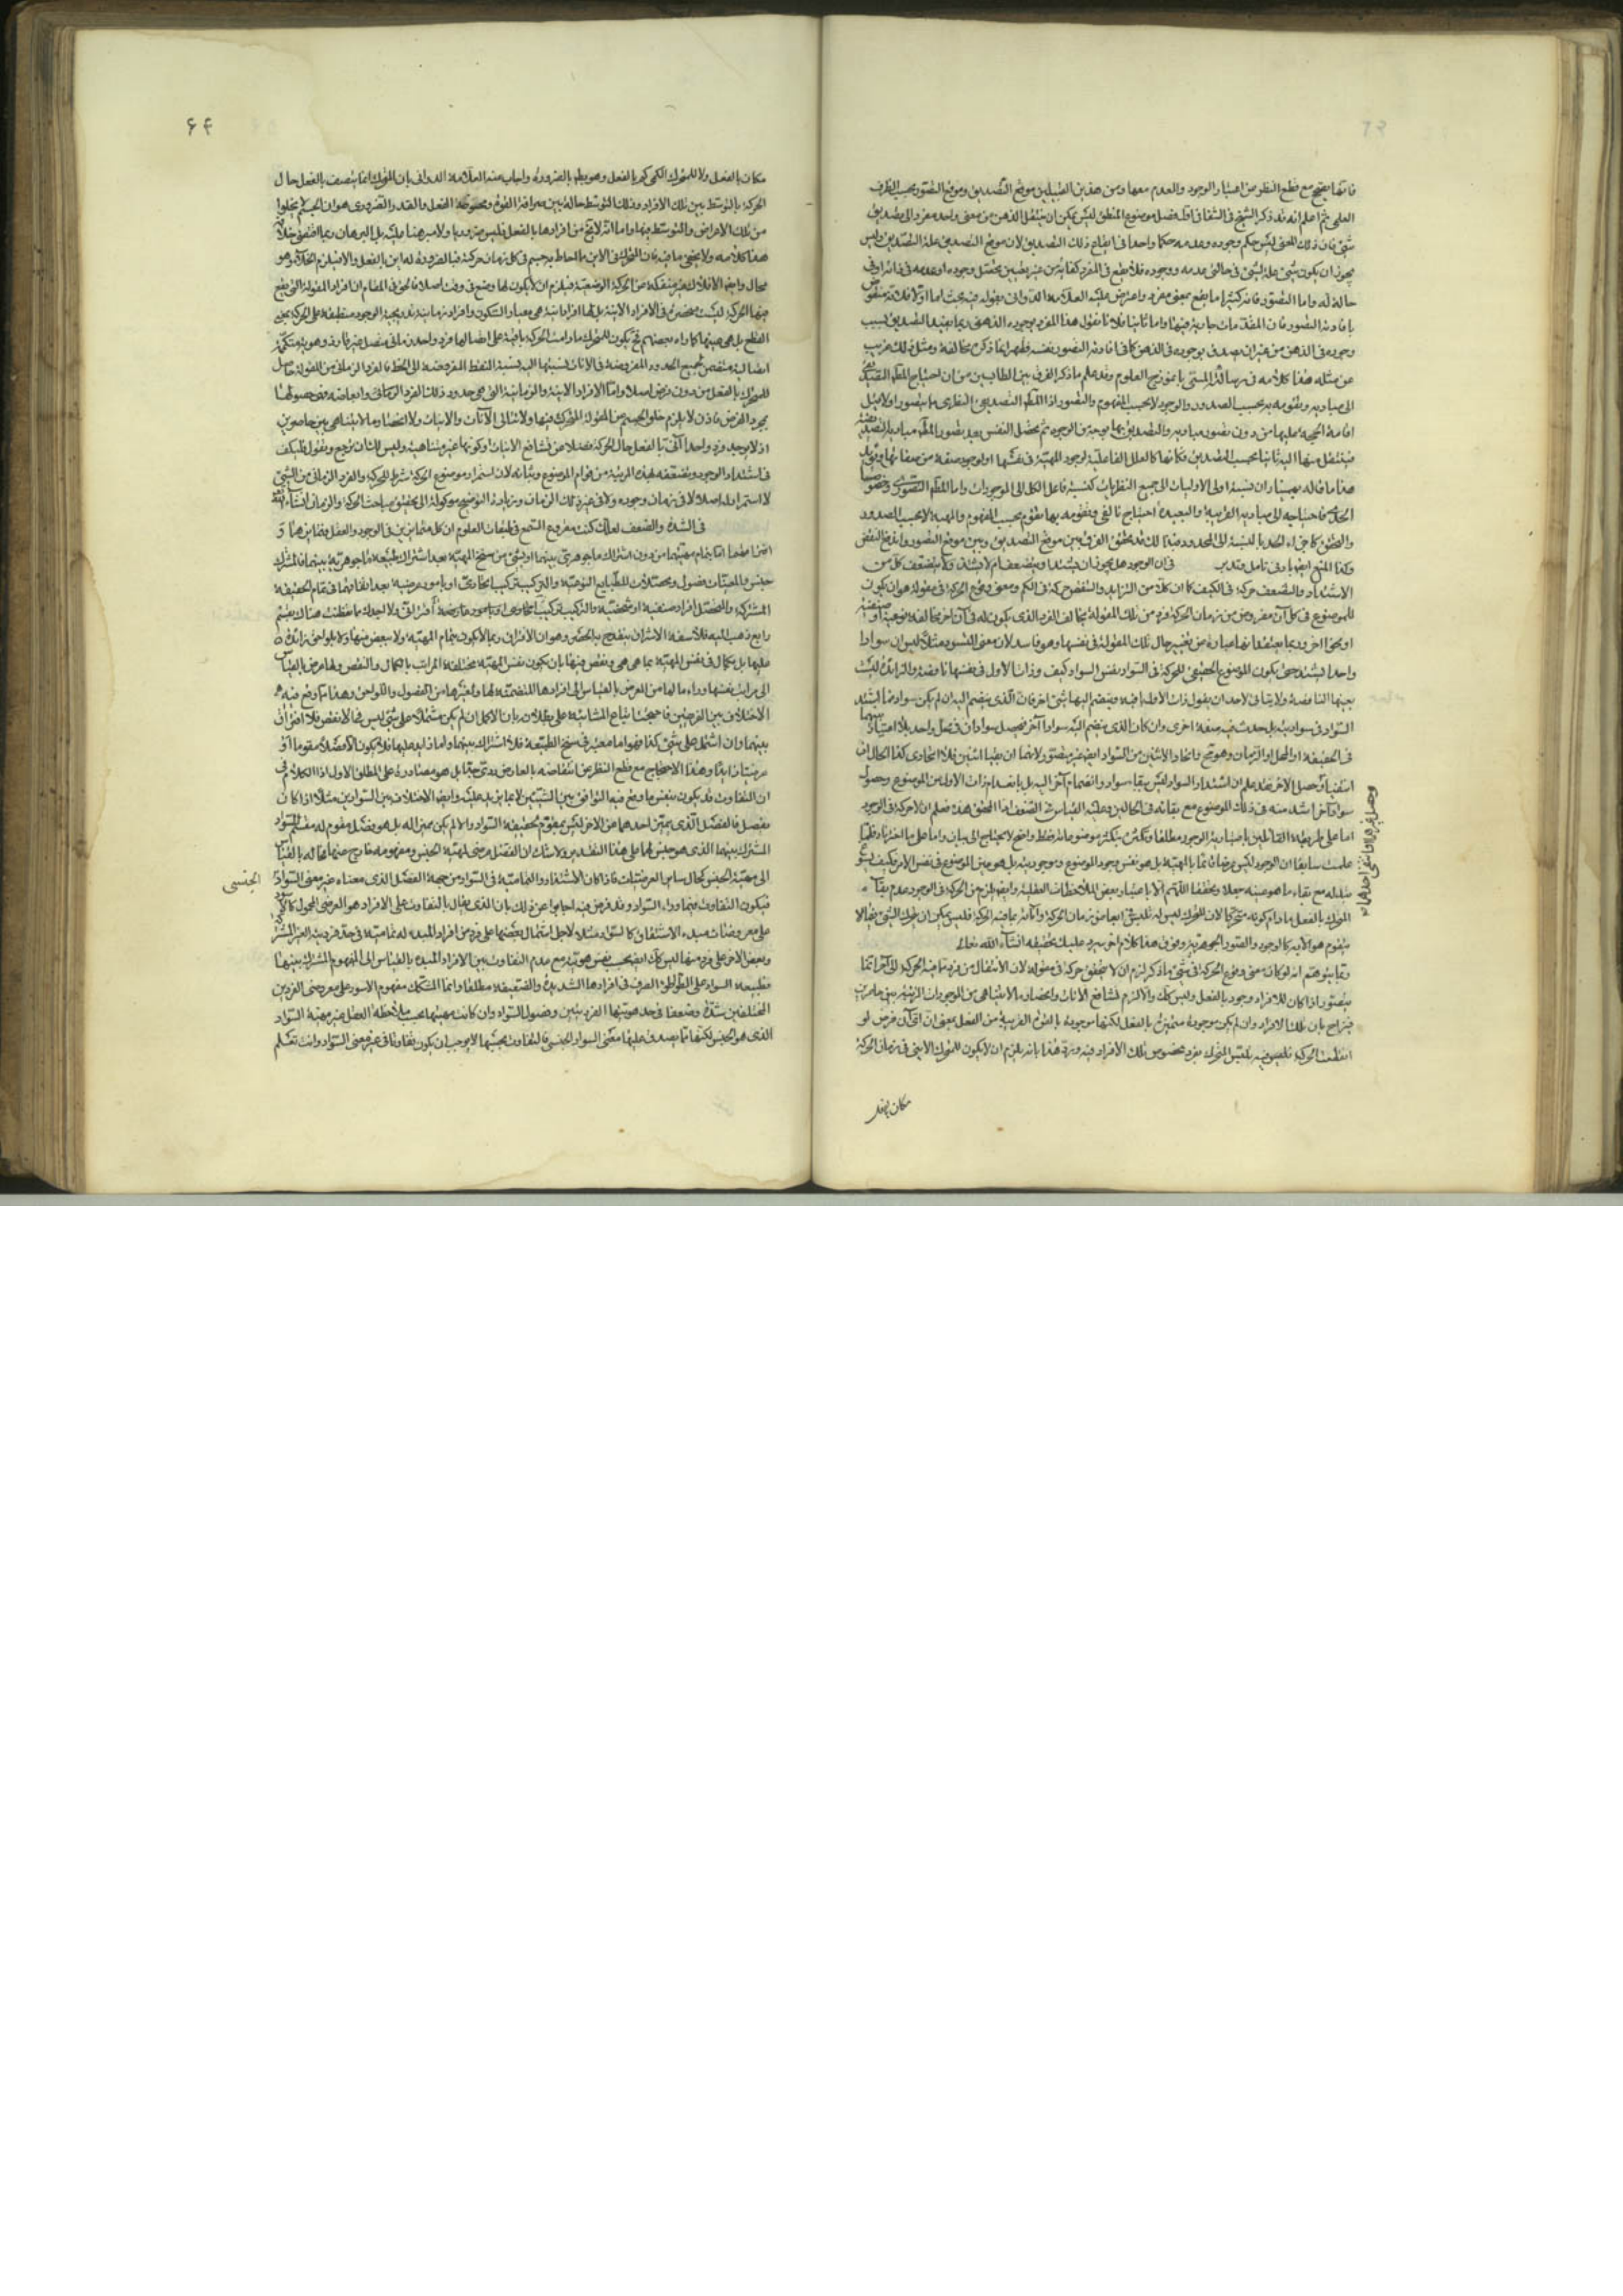 فانها يصح مع قطع النظر عن اعتبار الوجود والعدم معها ومن هذين القبيلين موضع التصديق وموقع التصور بحسب الظرف
العلمى ثم اعلم انه قد ذكر الشيخ فى الشفا فى اول فصل موضوع المنطق ليس يمكن ان ينتقل الذهن من معنى واحد مفرد الى تصديق
شئ فان ذلك المعنى ليس حكم وجوده وعدمه حكما واحدا فى ايقاع ذلك التصديق لان موقع التصديق علة التصديق وليس
يجوز ان يكون شئ علة لشئ فى حالتى عدمه ووجوده فلا يقع فى المفرد كفاية من غير تحصيل وجوده او عدمه فى ذاته او فى
حالة له واما التصور فانه كثيرا ما يقع بمعنى مفرد واعترض عليه العلامة الدوانى بقوله فيه بحث اما اولا فلانه منقوض
بافادته التصور فان المقدمات جارية فيها واما ثانيا فلانا نقول هذا المفرد بوجوده الذهنى ربما يفيد التصديق بسبب
وجوده فى الذهن من غير ان يصدق بوجوده فى الذهن كما فى افادته التصور نفسه فظهر انما ذكره مغالطة ومثل ذلك غريب
عن مثله هذا كلامه فى رسالته المسمى بانموذج العلوم وقد علم ما ذكر الفرق بين الطالبين من ان احتياج المطلب التصديقى
الى مباديه وتقومه به بحسب الصدور والوجود لا بحسب المفهوم والتصور اذ المطلب التصديقى النظرى ما يتصور اولا قبل
اقامة الحجة عليها من دون تصور مباديه والتصديق بها بوجه من الوجوه ثم يحصل النفس بعد تصور المطلب مبادى تصديقية
فينتقل منها اليه ثانيا بحسب التصديق فكانها كالعلل الفاعلية لوجود المهية فى نفسها او لوجود صفة من صفاتها ويؤيد
هذا ما قاله بهمنيار ان نسبة اولى الاوليات الى جميع النظريات كنسبة فاعل الكل الى الموجودات واما المطلب التصورى وخصوصا
الحدى فاحتياجه الى مباديه القريبة والبعيدة احتياج تالفى وتقومه بها تقوم بحسب المفهوم والمهية لا بحسب الصدور
والتحقق كاجزاء الحد بالنسبة الى المحدود فبذلك قد تحقق الفرق بين موقع التصديق وبين موقع التصور واندفع النقض
وكذا المنع ايضا بادنى تامل وتدبر فى ان الوجود هل يجوز ان يشتد او يضعف ام لا يشتد ولا يتضعف كل من
الاشتداد والتضعف حركة فى الكيف كما ان كلا من التزايد والتنقص حركة فى الكم ومعنى وقوع الحركة فى مقولة هو ان يكون
للموضوع فى كل آن مفروض من زمان الحركة فرد من تلك المقولة يخالف الفرد الذى يكون له فى آن آخر مخالفة نوعية او صنفية
او نحوا آخر وربما يعتقد انها عبارة عن تغير حال تلك المقولة فى نفسها وهو فاسد لان معنى التسود مثلا ليس ان سوادا
واحدا يشتد حتى يكون الموضوع الحقيقى للحركة فى السواد نفس السواد كيف وذات الاول فى نفسها ناقصة والزائدة ليست
بعينها الناقصة ولا يتاتى لاحد ان يقول ذات الاول باقية وينضم اليها شئ آخر فان الذى ينضم اليه ان لم يكن سوادا فما اشتد
السواد فى سواديته بل حدث فيه صفة اخرى وان كان الذى ينضم اليه سوادا آخر فيحصل سوادان فى محل واحد بلا امتياز بينهما
فى الحقيقة او المحل او الزمان وهو مح واتحاد الاثنين من السواد ايضا غير متصور لانهما ان بقيا اثنين فلا اتحاد وكذا الحال ان
انتفيا وحصل الآخر فقد علم ان اشتداد السواد ليس ببقاء سواد وانضمام آخر اليه بل بانعدام ذات الاول عن الموضوع وحصول
سواد آخر اشد منه فى ذلك الموضوع مع بقائه فى الحالين وعليه القياس فى التضعف اذا تحقق هذا فنعلم ان لا حركة فى الوجود
اما على طريقة القائلين باعتبارية الوجود مطلقا وتكثره بتكثر موضوعاته فقط واضح لا يحتاج الى بيان واما على ما اخترناه فلما
علمت سابقا ان الوجود ليس عرضا قائما بالمهية بل هو نفس وجود الموضوع وموجوديته بل هو عين الموضوع فى نفس الامر فكيف يسوغ
تبدله مع بقاء ما هو عينه جعلا وتحققا اللهم الا باعتبار بعض الملاحظات العقلية وايضا يلزم من الحركة فى الوجود عدم بقاء
المتحرك بالفعل ما دام كونه متحركا لان للمتحرك ليس له تلبس فى ابعاض زمان الحركة وآناته بما فيه الحركة فليس يمكن ان يتحرك الشئ فيما لا
يتقوم هو الا به كالوجود والصور الجوهرية وفوق هذا كلام آخر سيرد عليك تحقيقه انشاء الله تعالى
ومما يتوهم انه لو كان معنى وقوع الحركة فى شئ ما ذكر لزم ان لا يتحقق حركة فى مقولة لان الانتقال من فرد ما فيه الحركة الى آخر انما
يتصور اذا كان للافراد وجود بالفعل وليس كك والا لزم تشافع الآنات وانحصار ما لا يتناهى من الموجودات المرتبة بين حاصرين
فيزاح بان تلك الافراد وان لم يكن موجودة متميزة بالفعل لكنها موجودة بالقوة القريبة من الفعل بمعنى ان اى آن فرض لو
انقطعت الحركة فيه تلبس المتحرك بفرد مخصوص من تلك الافراد فيه ورد هذا بانه يلزم ان لا يكون للمتحرك الاينى فى زمان الحركة
مكان بالفعل
مكان بالفعل ولا للمتحرك الكمى كم بالفعل وهو بط بالضرورة واجاب عنه العلامة الدوانى بان المتحرك انما يتصف بالفعل حال
الحركة بالتوسط بين تلك الافراد وذلك التوسط حالة بين صرافة القوة ومحوضة الفعل والقدر الضرورى هو ان الجسم لا يخلو
من تلك الاعراض والتوسط بينها واما انه لا يخ من افرادها بالفعل فليس ضروريا ولا مبرهنا عليه بل البرهان ربما اقتضى خلافه
هذا كلامه ولا يخفى ما فيه فان المتحرك فى الاين ما احاط به جسم فى كل زمان حركته فبالضرورة له اين بالفعل والا فيلزم الخلاء وهو
محال وايضا الافلاك غير منفكة عن الحركة الوضعية فيلزم ان لا يكون لها وضع فى وقت اصلا فالحق فى المقام ان افراد المقولة التى يقع
فيها الحركة ليست منحصرة فى الافراد الآنية بل لها افراد آنية هى معيار السكون وافراد زمانية تدريجية الوجود منطبقة على الحركة بمعنى
القطع بل هى عينها كما رآه بعضهم فح يكون للمتحرك ما دامت الحركة باقية على اتصالها فرد واحد زمانى متصل غير قار ذو هوية متكممة
اتصالية متضمن لجميع الحدود المفروضة فى الآنات نسبتها اليه نسبة النقط المفروضة الى الخط فالفرد الزمانى من المقولة حاصل
للمتحرك بالفعل من دون فرض اصلا واما الافراد الآنية والزمانية التى هى حدود ذلك الفرد الزمانى وابعاضه فهى حصولها
بمجرد الفرض فاذن لا يلزم خلو الجسم عن المقولة المتحرك فيها ولا تتالى الآنات والآنيات ولا انحصار ما لا يتناهى بين حاصرين
اذ لا يوجد فرد واحد آنى بالفعل حال الحركة فضلا عن تشافع الآنيات او كونها غير متناهية وليس لك ان ترجع وتقول فليكف
فى اشتداد الوجود وتضعفه هذه المرتبة من قوام الموضوع وبقائه لان استمرار موضوع الحركة شرط الحركة والفرد الزمانى من الشئ
لا استمرار له اصلا لا فى زمان وجوده ولا فى غيره من الزمان وزيادة التوضيح موكولة الى تحقيق مباحث الحركة والزمان انشاء الله
فى الشدة والضعف لعلك كنت مقروع السمع فى طبقات العلوم ان كل متمايزين فى الوجود والعقل فتمايزهما و
افتراقهما اما بتمام مهيتهما من دون اشتراك ما جوهرى بينهما او بشئ من سنخ المهية بعد اشتراك طبيعة ما جوهرية بينهما فالمشترك
جنس والمعينات فصول ومحصلات للطبايع النوعية والتركيب تركيب اتحادى او بامور عرضية بعد اتفاقهما فى تمام الحقيقة
المشتركة والمتحصل افراد صنفية او شخصية والتركيب تركيب اتحادى او بامور عارضة افتراقى ولا احد لك ما حفظت هناك بقسم
رابع ذهب اليه فلاسفة الاشراق ينقدح به الحصر وهو ان الافتراق ربما لا يكون بتمام المهية ولا ببعض منها ولا بلواحق زائدة
عليها بل بكمال فى نفس المهية بما هى هى ونقص فيها بان يكون نفس المهية مختلفة المراتب بالكمال والنقص ولها عرض بالقياس
الى مراتب نفسها وراء ما لها من العرض بالقياس الى افرادها المتضمنة لها ولغيرها من الفصول واللواحق وهذا مما وقع فيه
الاختلاف بين الفريقين فاحتجت اتباع المشائية على بطلانه بان الاكمل ان لم يكن مشتملا على شئ ليس فى الانقص فلا افتراق
بينهما وان اشتمل على شئ كذا فهو اما معتبر فى سنخ الطبيعة فلا اشتراك بينهما واما زائد عليها فلا يكون الا فصلا مقوما او
عرضيا زائدا وهذا الاحتجاج مع قطع النظر عن انتقاضه بالعارض ردى جدا بل هو مصادرة على المطلوب الاول اذ الكلام فى
ان التفاوت قد يكون بنفس ما وقع فيه التوافق بين الشيئين لا بما يزيد عليه وايضا الاختلاف بين السوادين مثلا اذا كان
بفصل فالفصل الذى يميز احدهما عن الآخر ليس بمقوم لحقيقة السواد والا لم يكن مميزا له بل هو فصل مقوم له مقسم للسواد
المشترك بينهما الذى هو جنس لهما على هذا التقدير ولا شك ان الفصل عرضى لمهية الجنس ومفهومه خارج عنها حاله بالقياس
الى مهية الجنس كحال سائر العرضيات فاذا كان الاشتداد والتمامية فى السواد من جهة الفصل الذى معناه غير معنى السواد
الجنسى
فيكون التفاوت فيما وراء السواد وقد فرض فيه اجابوا عن ذلك بان الذى يقال بالتفاوت على الافراد هو العرضى المحمول كالاسود
على معروضات مبدء الاشتقاق كالسواد مثلا لاجل اشتمال بعضها على فرد من افراد المبدء له تمامية فى حد فرديته الغير المشتركة
وبعض الآخر على فرد منها ليس كك ايضا بحسب نقص هويته مع عدم التفاوت بين الافراد المبدء بالقياس الى المفهوم المشترك بينها
فطبيعة السواد على التواطؤ الصرف فى افرادها الشديدة والضعيفة مطلقا وانما المشكك مفهوم الاسود على معروضى الفردين
المختلفين شدة وضعفا فى حد هويتهما الفرديتين وفصول السواد وان كانت مهيتها بحسب ملاحظة العقل غير مهية السواد
الذى هو الجنس لكنها مما يصدق عليها معنى السواد الجنسى فالتفاوت بحسبها لا يوجب ان يكون تفاوتا فى غير معنى السواد وانت تعلم